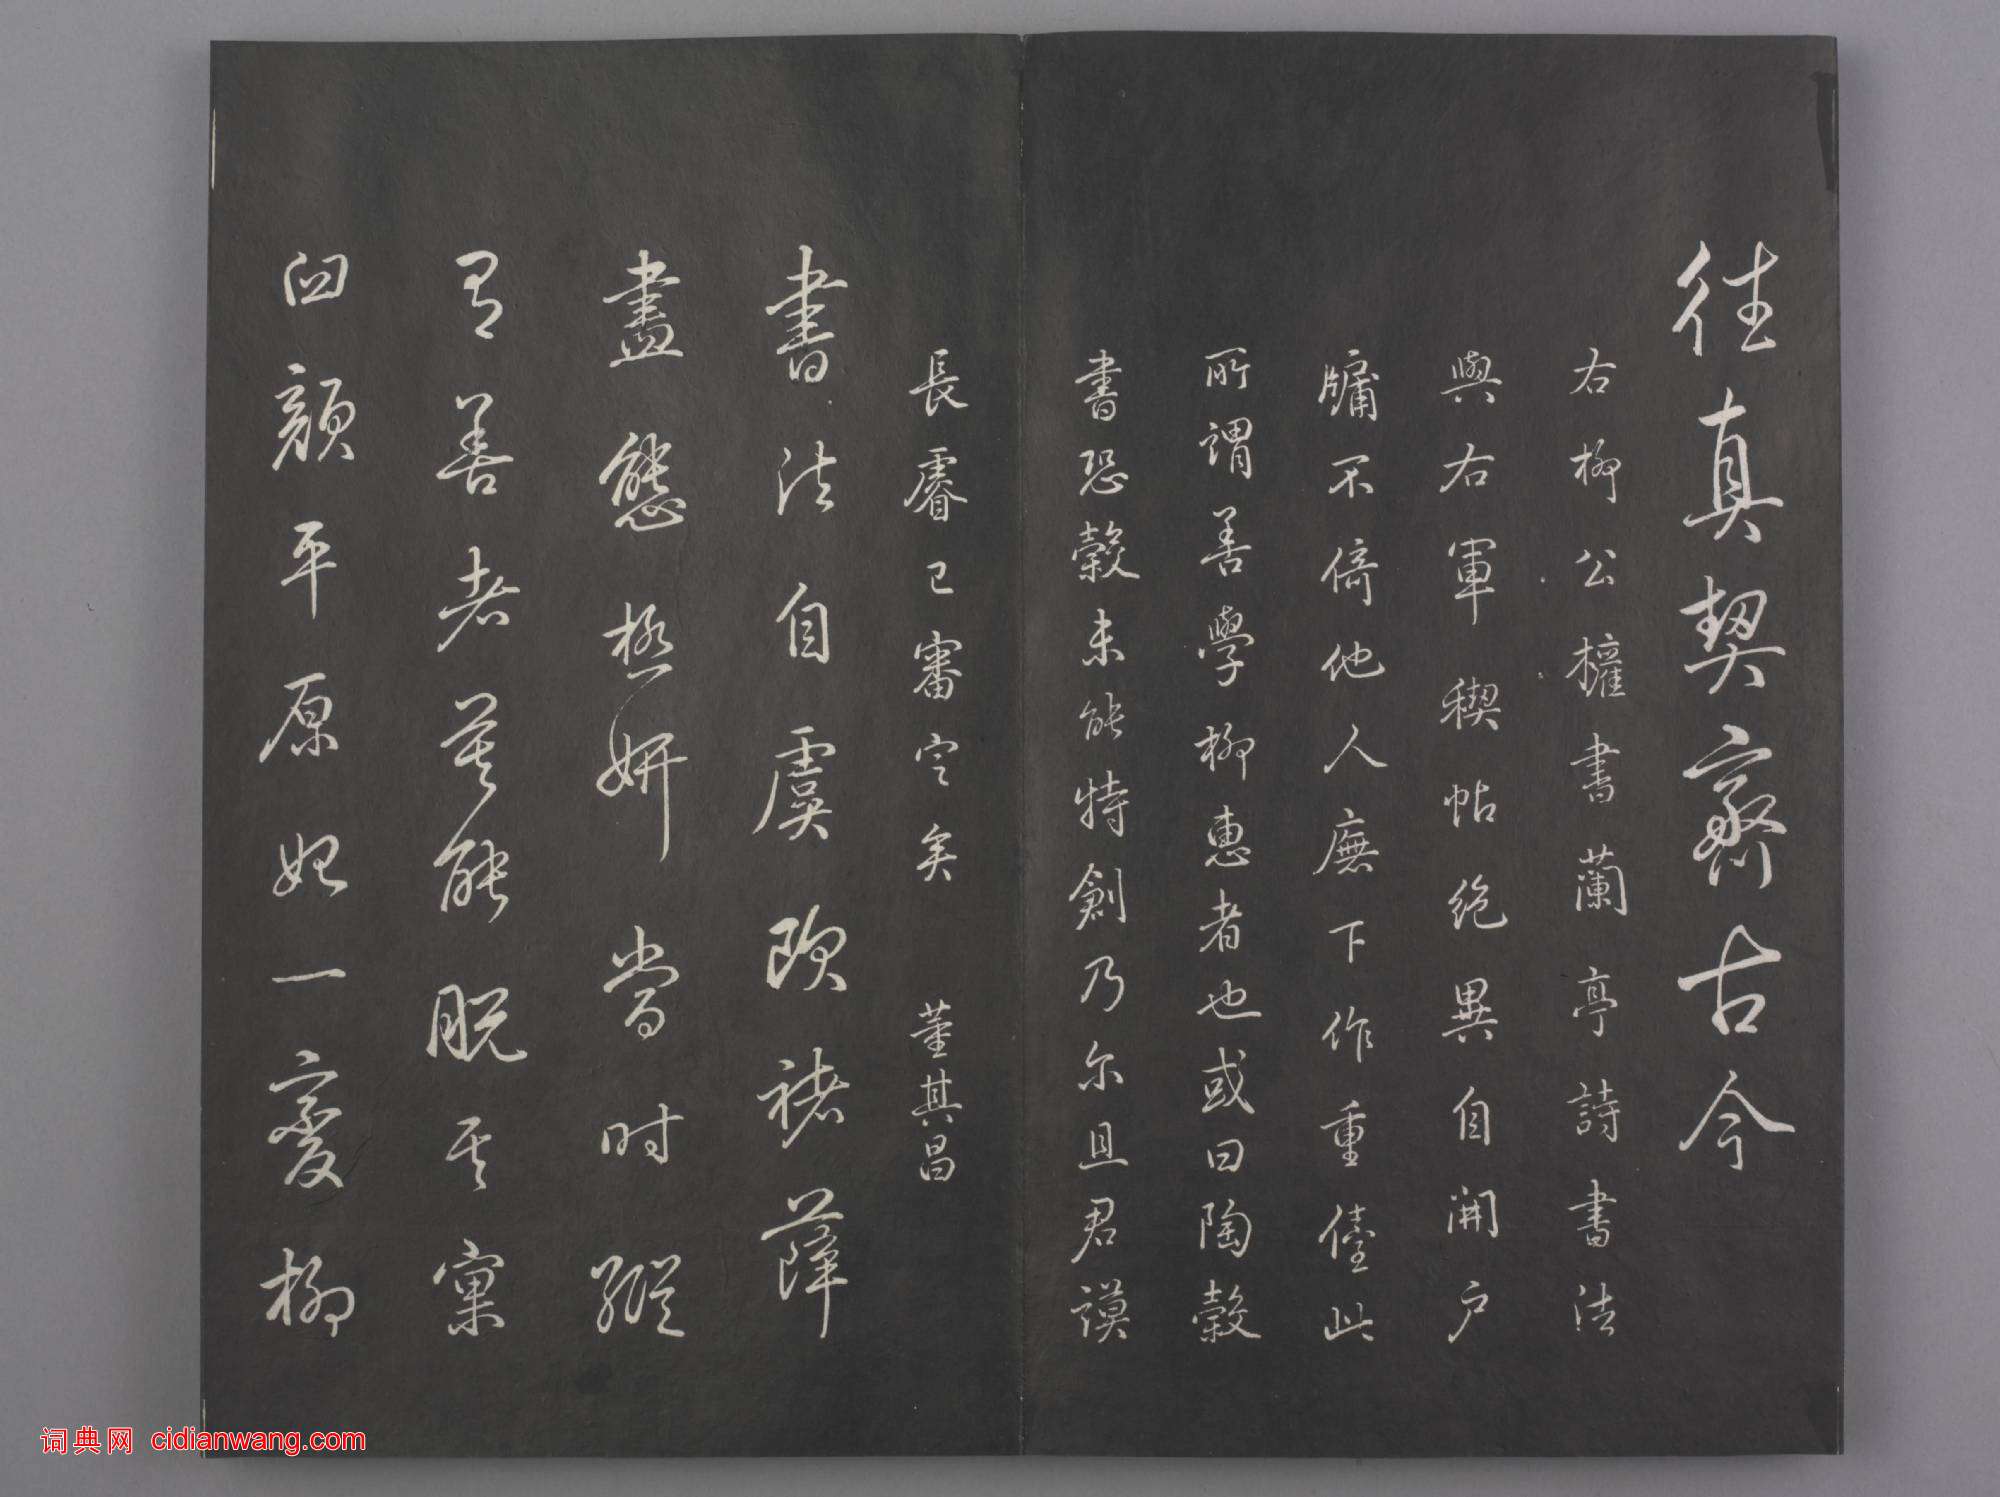 往真契齋古今
右柳公權書蘭亭詩書法
與右軍禊帖絕異自開户
牖不倚他人廡下作重儓此
所謂善學柳惠者也或曰陶穀
書恐穀未能特創乃尔且君謨
長睿已審定矣 董其昌
書法自虞歐褚薛
盡態極妍當时縱
有善者莫能脱其窠
臼顏平原始一變柳
词典网 cidianwang.com